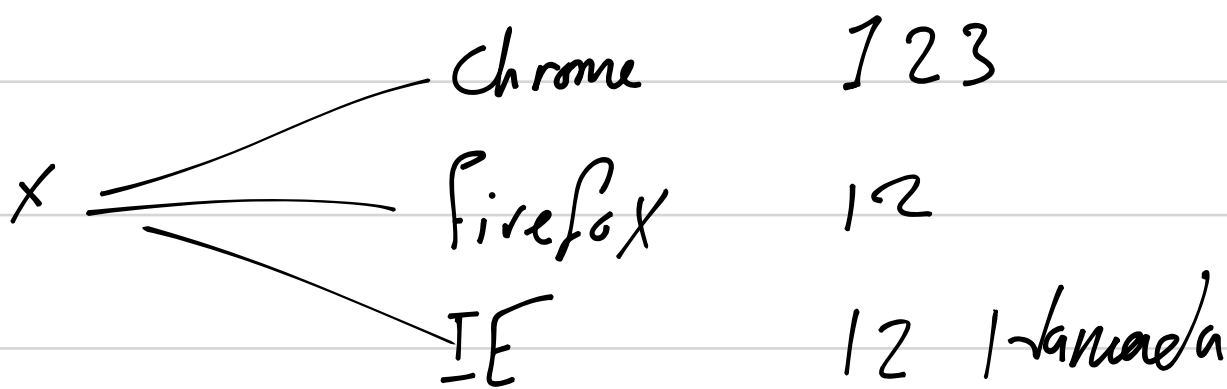 Chrome 123
X Firefox 12
IE 12 Hamada